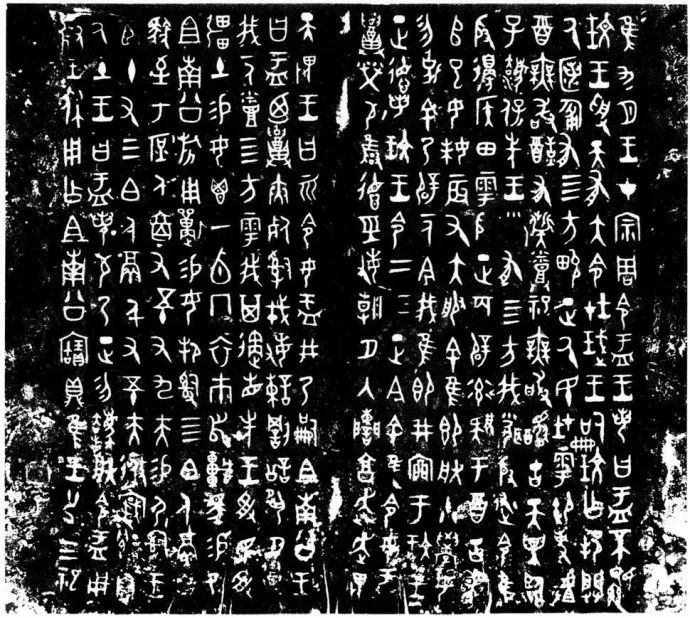 隹九月王才宗周令盂王若曰盂不顯
玟王受天有大令在珷王嗣玟乍邦闢
厥匿匍有四方畯正厥民在雩御事𠭯
酒無敢酖有祡烝祀無敢醻古天異臨
子灋保先王有四方我聞殷述令隹
殷邊侯田雩殷正百辟率肄于酒古喪
𠂤巳女妹辰又大服余隹即朕小學女
勿剋余乃辟一人今我隹即井㐭于玟王
正德若玟王令二三正今余隹令女盂
召榮敬雍德巠敏朝夕入讕享奔走畏
天畏王曰而令女盂井乃嗣且南公王
曰盂廼召夾死𤔲戎敏諫罰訟夙夕召
我一人烝四方雩我其遹省先王受民受
疆土易女鬯一卣冂衣巿舄車馬易乃
且南公旂用狩易女邦𤔲四白人鬲自
馭至于庶人六百又五十又九夫易尸𤔲王
臣十又三白人鬲千又五十夫遷自
厥土王曰盂若敬乃正勿灋朕令盂用
對王休用乍且南公寶鼎隹王廿又三祀